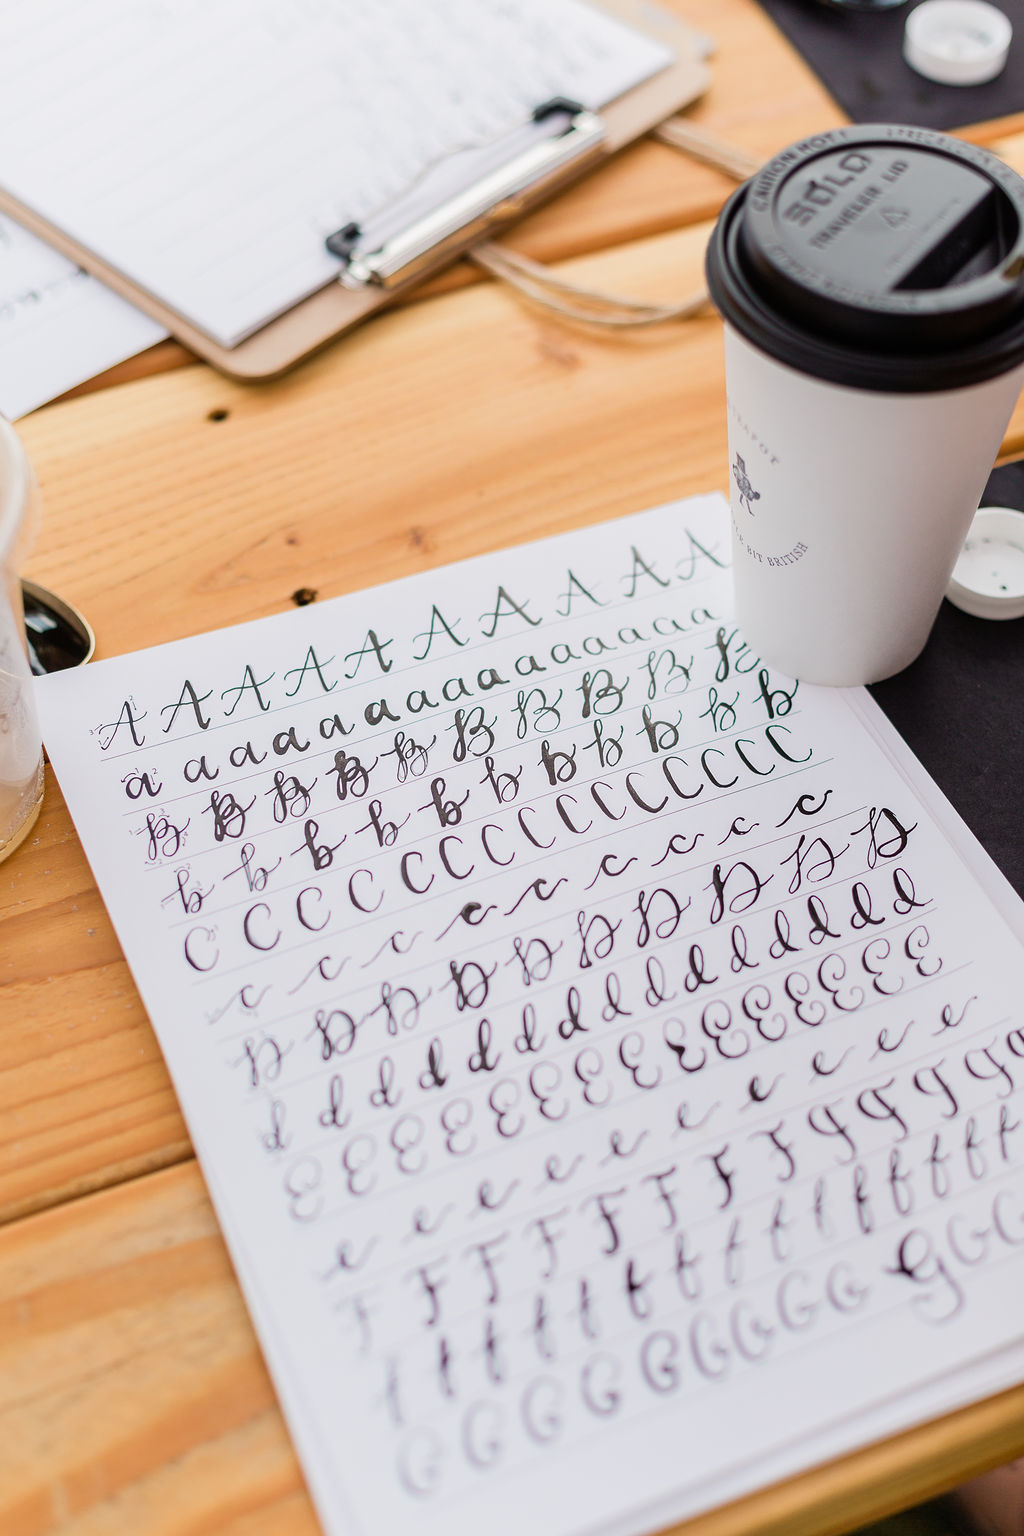 CAUTION HOT!
SOLO
TRAVELER LID
TEAPOT
BIT BRITISH
A A A A A A A A A A
a a a a a a a a a a a a a a a
B B B B B B B B B B
b b b b b b b b b b b
C C C C C C C C C C C C C C C
c c c c c c c c c
D D D D D D D D D D
d d d d d d d d d d d d d d d
E E E E E E E E E E E E E E E
e e e e e e e e e e
F F F F F F F F F F F F
f f f f f f f f f f f f f f f
G G G G G G G G G G G G